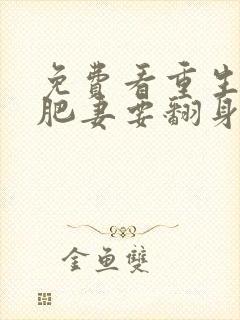 免費看重生
肥妻要翻身
金魚雙